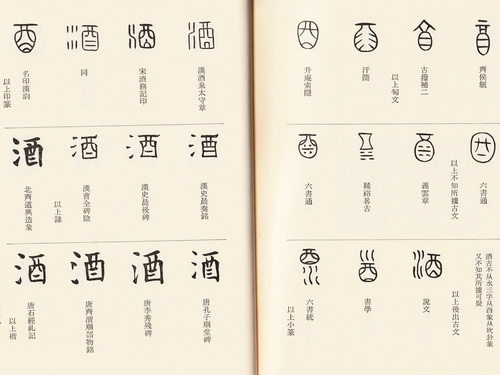 齊侯甔
古籀補二
以上匋文
汗簡
升庵索隱
六書通
以上不知所據古文
義雲章
六書通
酒古不从水三字从酉象从坎卦象
又不知其所據可疑
以上後出古文
酒
說文
書學
六書統
以上小篆
酒
漢酒泉太守章
酒
宋酒務記印
酒
同
名印漢韵
以上印篆
酒
漢史晨奏銘
酒
漢史晨後碑
酒
漢曹全碑陰
以上隸
酒
北齊道興造象
酒
唐孔子廟堂碑
酒
唐李秀殘碑
酒
酒
唐石經禮記
以上楷